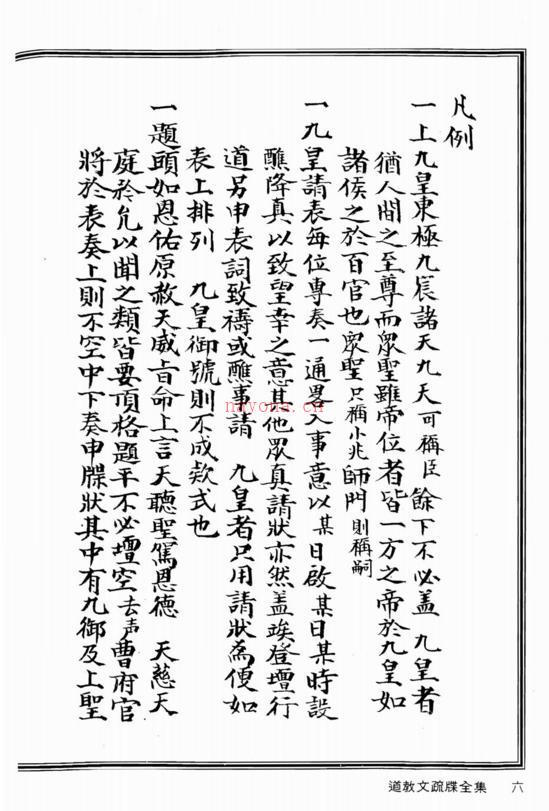 凡例
一上九皇東極九宸諸天九天可稱臣餘下不必盖　九皇者
猶人間之至尊而衆聖雖帝位者皆一方之帝於九皇如
諸侯之於百官也衆聖只稱小兆師門則稱嗣
一九皇請表每位專奏一通畧入事意以某日啟某日某時設
醮降真以致望幸之意其他衆真請狀亦然盖竢登壇行
道另申表詞致禱或醮事請　九皇者只用請狀為便如
表上排列　九皇御號則不成欵式也
一題頭如恩佑原赦天威旨命上言天聽聖駕恩德　天慈天
庭矜允以聞之類皆要頂格題平不必壇空去聲曹府官
將於表奏上則不空中下奏申牒狀其中有九御及上聖
nayona.cn
道教文疏牒全集　六